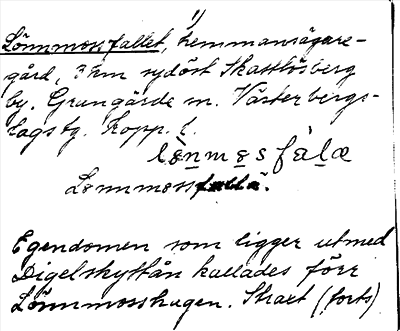 1)
Lönnmossfallet, hemmansägare-
gård, 3 km sydöst Skattlösberg
by. Grangärde sn. Västerbergs-
lags tg. Kopp. l.
lònmosfàlæ
Lönnmossfalla.
Egendomen som ligger utmed
Digelskyttån kallades förr
Lönnmosshagen. Straxt (forts)